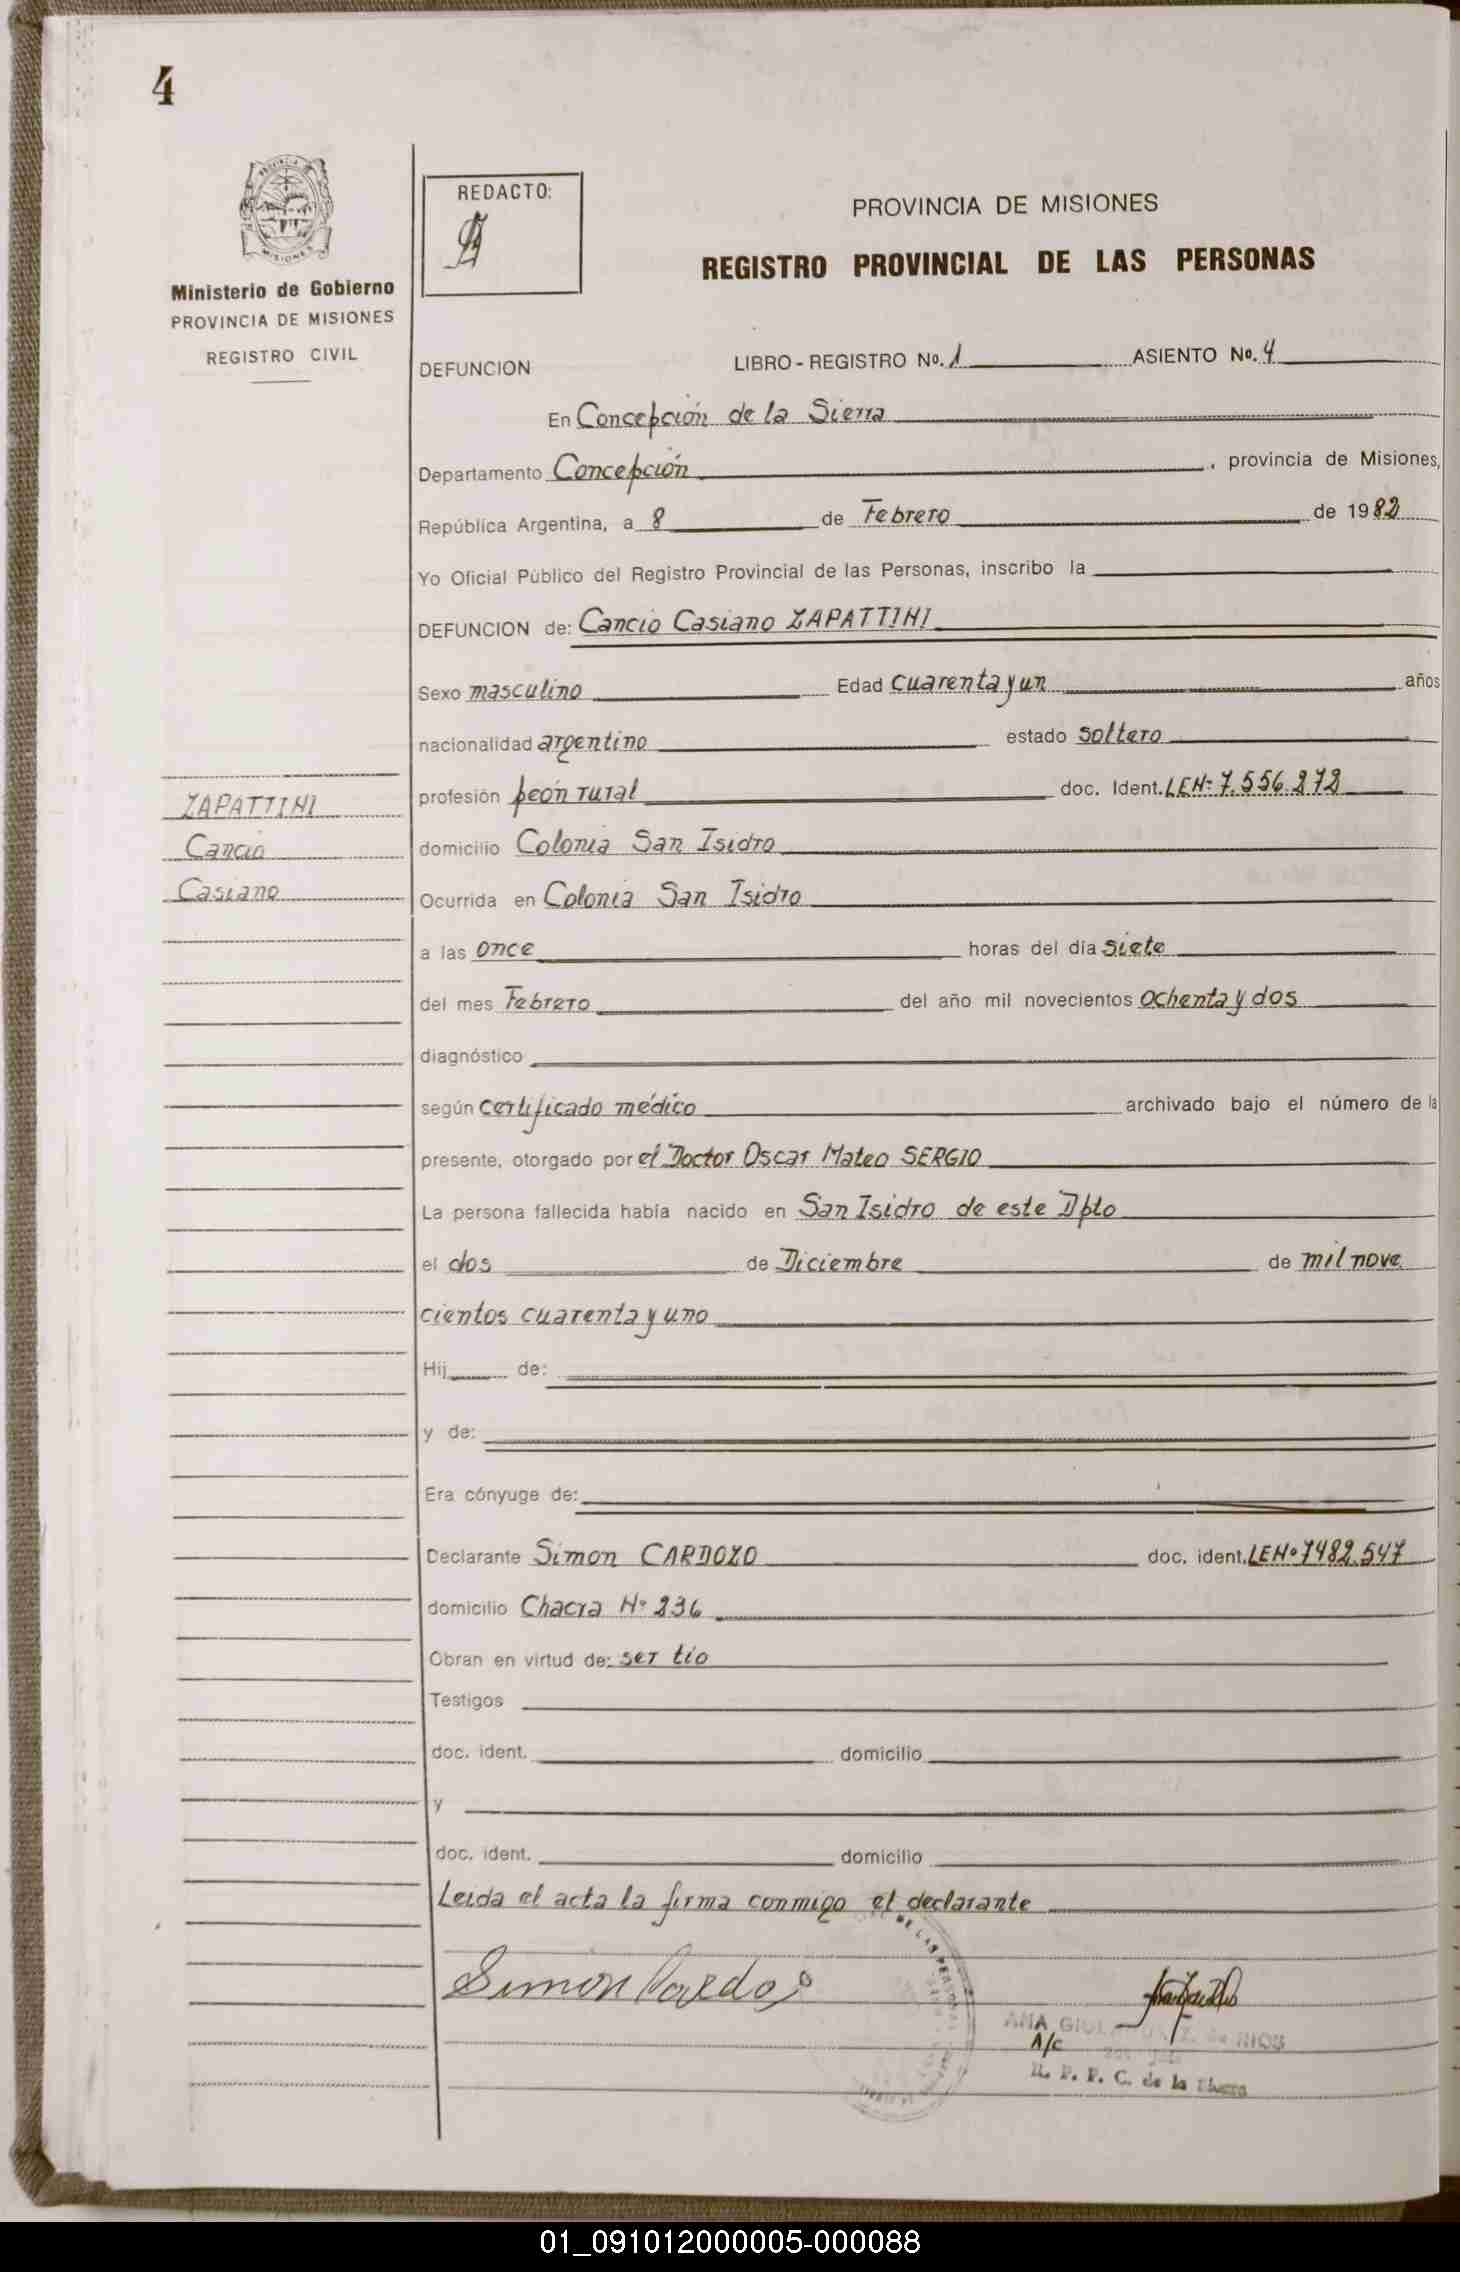 4
PROVINCIA
MISIONES
Ministerio de Gobierno
PROVINCIA DE MISIONES
REGISTRO CIVIL
REDACTO:
PROVINCIA DE MISIONES
REGISTRO PROVINCIAL DE LAS PERSONAS
DEFUNCION LIBRO - REGISTRO No. 1 ASIENTO No. 4
En Concepción de la Sierra
Departamento Concepción, provincia de Misiones,
República Argentina, a 8 de Febrero de 1982
Yo Oficial Público del Registro Provincial de las Personas, inscribo la
DEFUNCION de: Cancio Casiano ZAPATTINI
Sexo masculino Edad cuarenta y un años
nacionalidad argentino estado soltero
ZAPATTINI
Cancio
Casiano
profesión peón rural doc. Ident. LEN= 7.556.272
domicilio Colonia San Isidro
Ocurrida en Colonia San Isidro
a las once horas del día siete
del mes Febrero del año mil novecientos ochenta y dos
diagnóstico
según certificado médico archivado bajo el número de la
presente, otorgado por el Doctor Oscar Mateo SERGIO
La persona fallecida había nacido en San Isidro de este Dpto
el dos de Diciembre de mil nove
cientos cuarenta y uno
Hij de:
y de:
Era cónyuge de:
Declarante Simon CARDOZO doc. ident. LENº 7482.547
domicilio Chacra Nº 236
Obran en virtud de: ser tío
Testigos
doc. ident. domicilio
y
doc. ident. domicilio
Leida el acta la firma conmigo el declarante
Simon Cardozo
DE LAS PERSONAS
ANA Z. de RIOS
A/c
R. P. P. C. de la Sierra
01_091012000005-000088